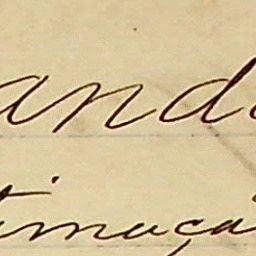 and
timaçã